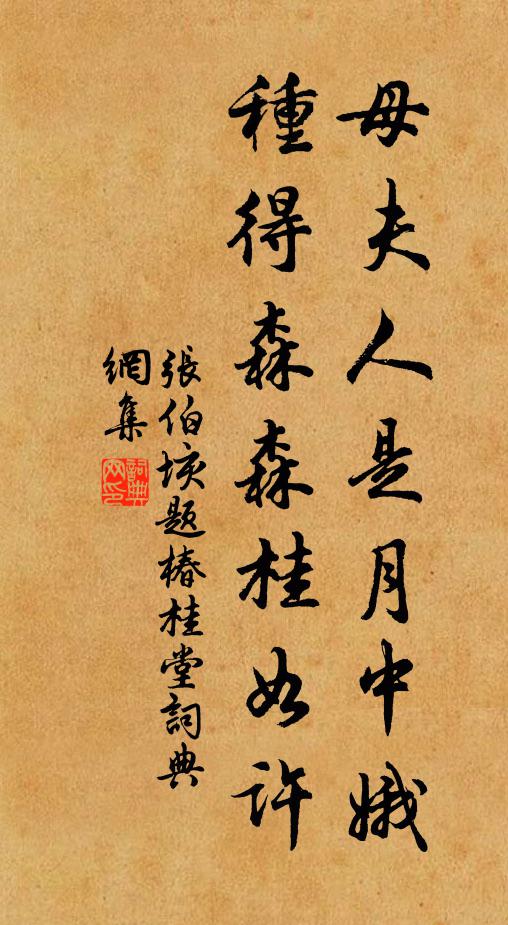 母夫人是月中娥
種得森森桂如許
張伯垓題椿桂堂詞典
網集
詞典网印